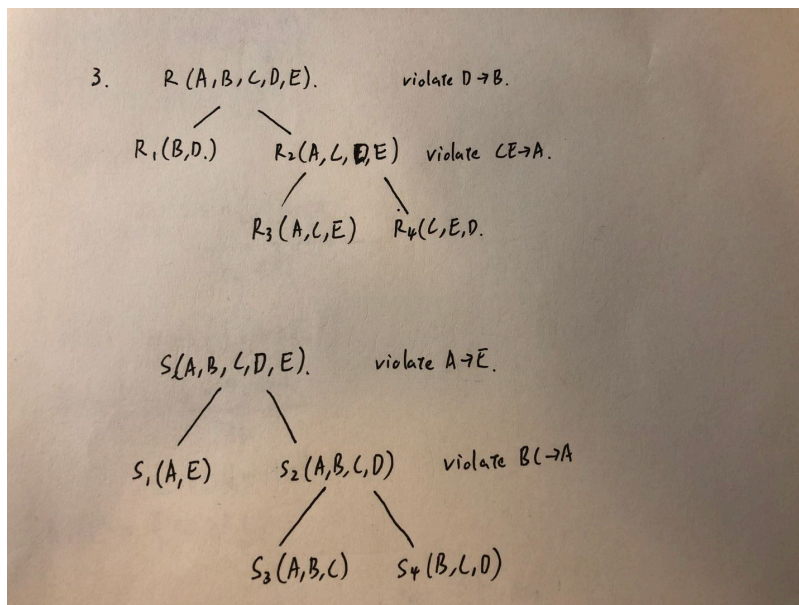 3. R(A,B,C,D,E). violate D→B.
R₁(B,D.) R₂(A,C,D,E) violate CE→A.
R₃(A,C,E) R₄(C,E,D.
S(A,B,C,D,E). violate A→E.
S₁(A,E) S₂(A,B,C,D) violate BC→A
S₃(A,B,C) S₄(B,C,D)